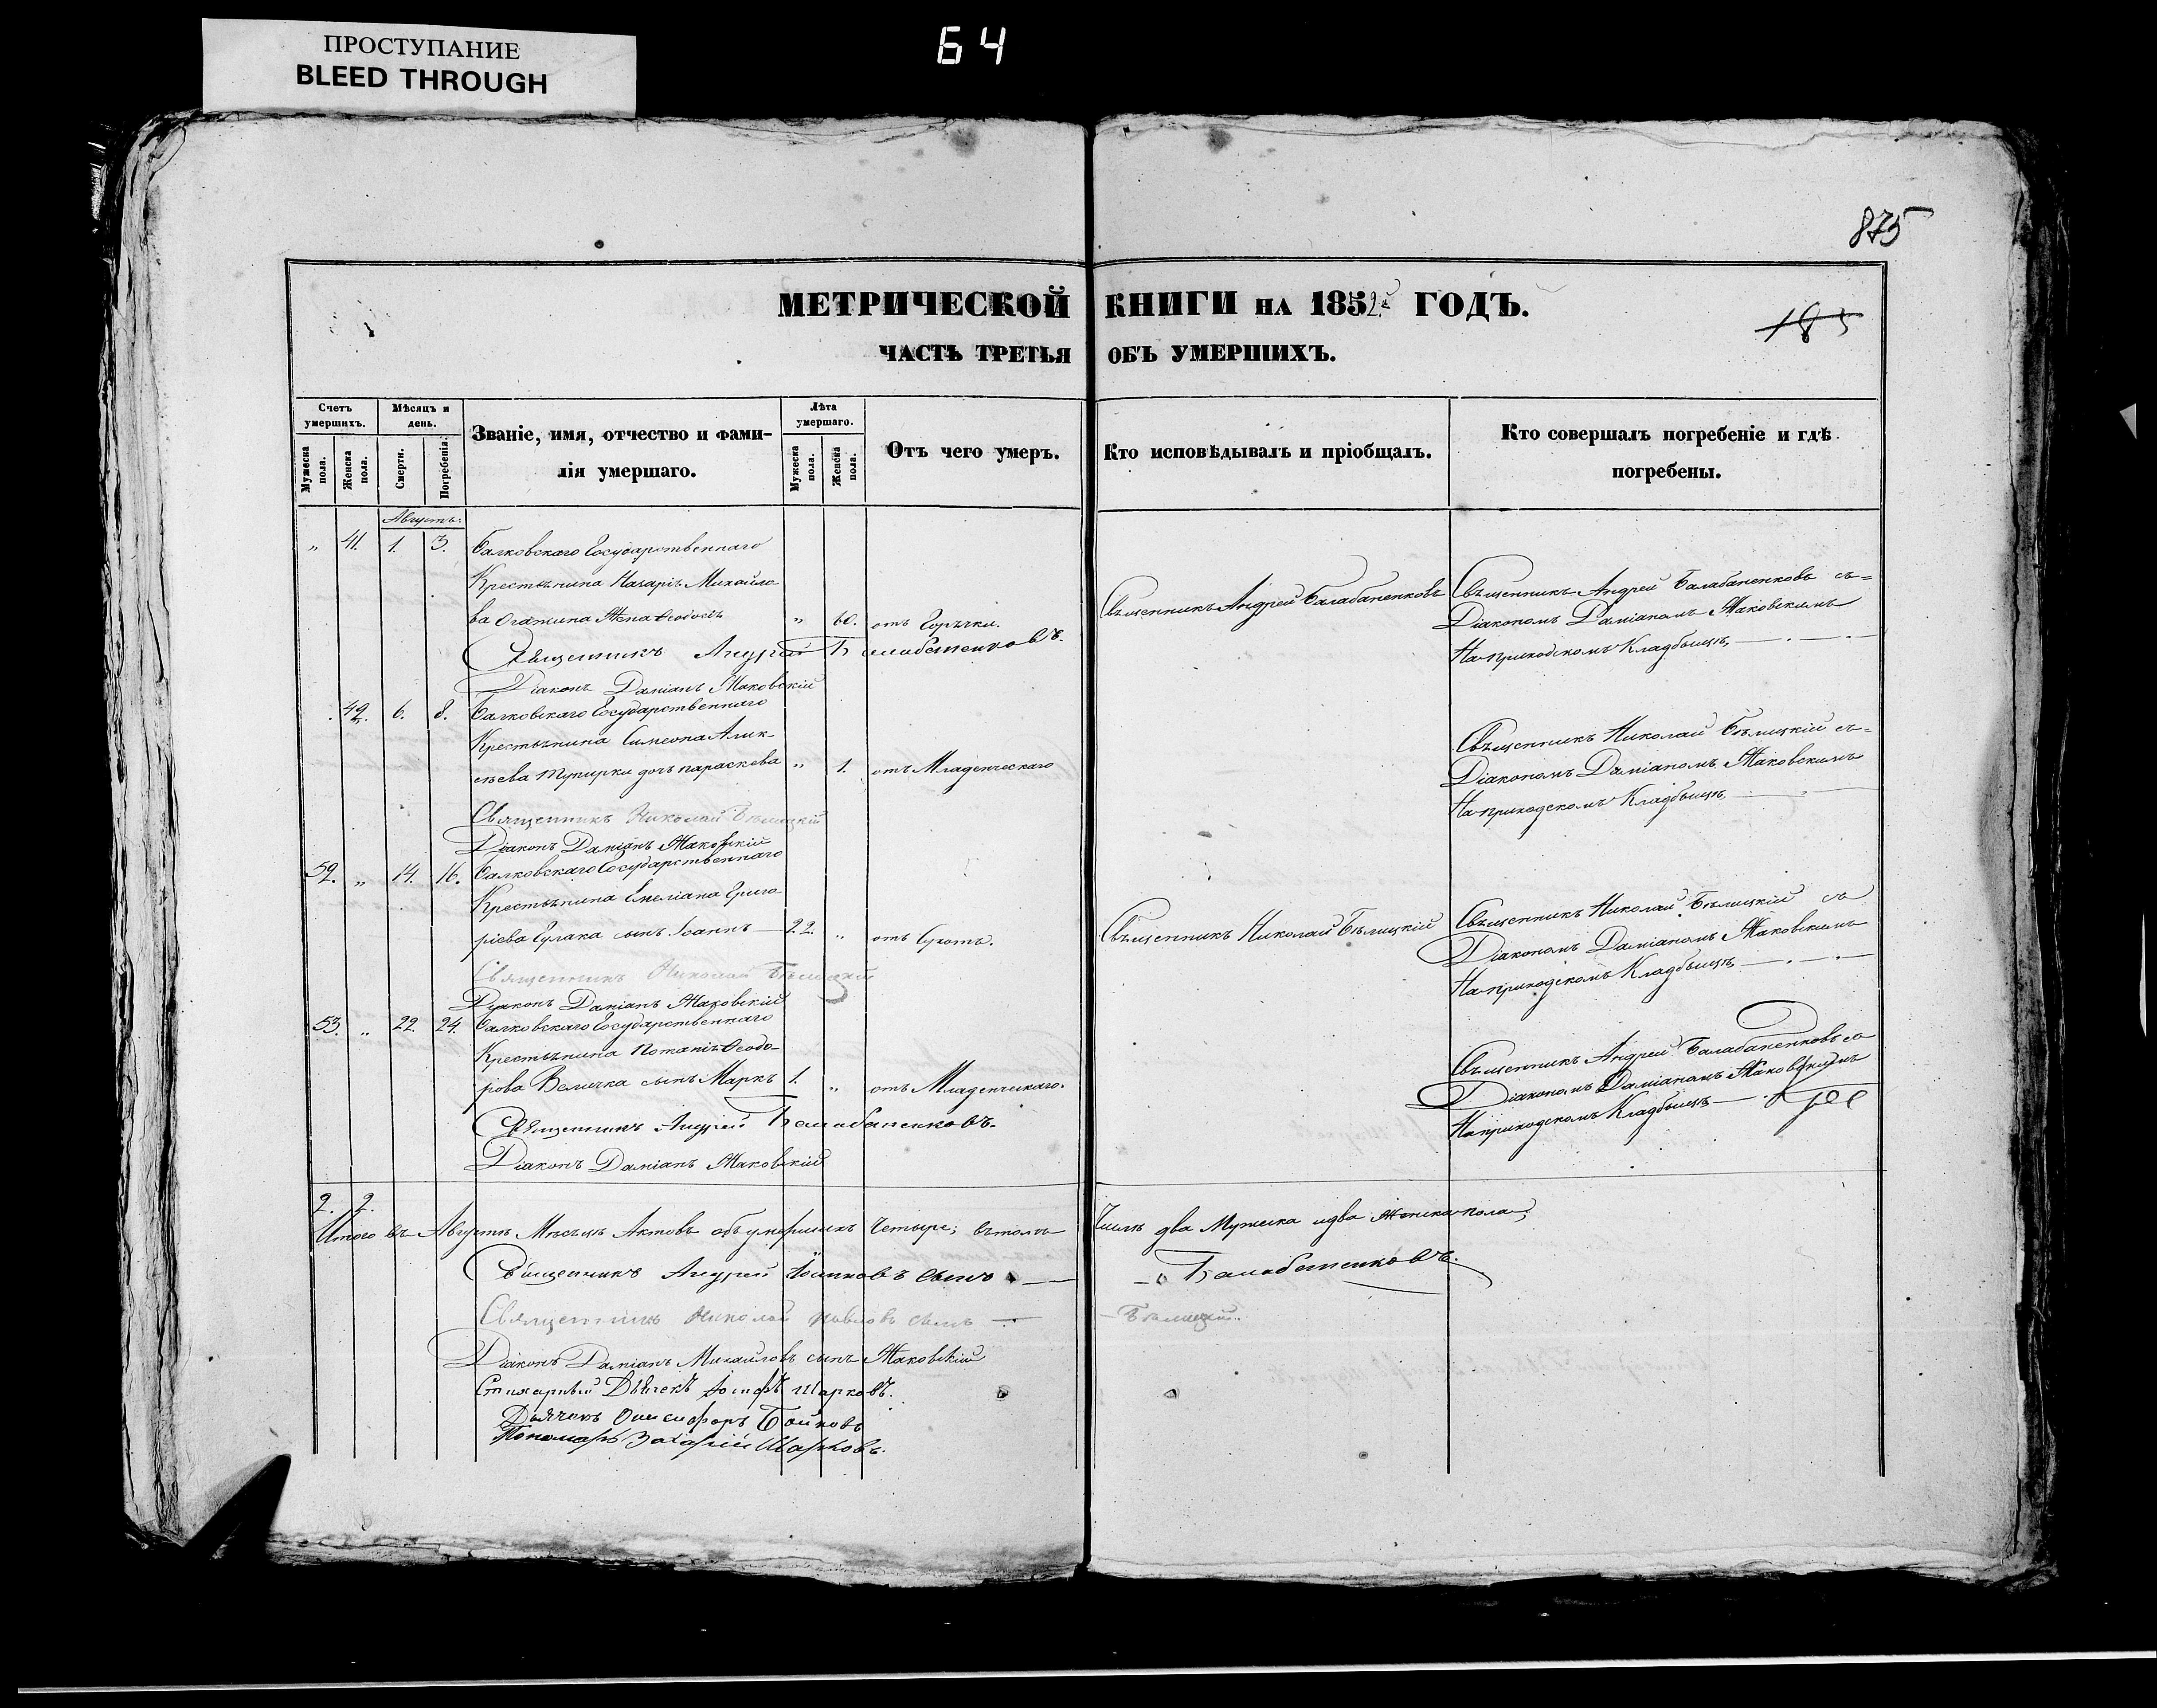 ПРОСТУПАНИЕ
BLEED THROUGH
64
875
МЕТРИЧЕСКОЙ КНИГИ НА 1852й ГОДЪ.
185
ЧАСТЬ ТРЕТЬЯ ОБЪ УМЕРШИХЪ.
Счетъ умершихъ.
Мужеска пола.
Женска пола.
Мѣсяцъ и день.
Смерти.
Погребенія.
Званіе, имя, отчество и фами-
лія умершаго.
Лѣта умершаго.
Мужеска пола.
Женска пола.
Отъ чего умеръ.
Кто исповѣдывалъ и пріобщалъ.
Кто совершалъ погребеніе и гдѣ
погребены.
Августъ.
„ 41. 1. 3. Балковскаго Государственнаго
Крестьянина Назарія Михайло-
ва Жена Ѳеодосія „ 60. отъ Горячки.
Священникъ Андрей Балабаненковъ
Священникъ Андрей Балабаненковъ съ=
Діакономъ Даміаномъ Маковскимъ
На приходскомъ Кладбищѣ
Священникъ Андрей Балабаненковъ.
Діаконъ Даміанъ Маковскій
42. 6. 8. Балковскаго Государственнаго
Крестьянина Симеона Алек-
сѣева дочь параскева „ 1. отъ Младенческаго
Священникъ Николай Бѣлицкій съ=
Діакономъ Даміаномъ Маковскимъ
На приходскомъ Кладбищѣ
Священникъ Николай Бѣлицкій
Діаконъ Даміанъ Маковскій
52. „ 14. 16. Балковскаго Государственнаго
Крестьянина Емеліана Григо-
ріева Гулака сынъ Іоаннъ 22. „ отъ Сухотъ.
Священникъ Николай Бѣлицкій
Священникъ Николай Бѣлицкій съ
Діакономъ Даміаномъ Маковскимъ
На приходскомъ Кладбищѣ
Священникъ Николай Бѣлицкій
Діаконъ Даміанъ Маковскій
53. „ 22. 24. Балковскаго Государственнаго
Крестьянина Потапія Ѳеодо-
рова Величка сынъ Маркъ 1. „ отъ Младенческаго.
Священникъ Андрей Балабаненковъ со
Діакономъ Даміаномъ Маковскимъ
На приходскомъ Кладбищѣ
Священникъ Андрей Балабаненковъ.
Діаконъ Даміанъ Маковскій
2. 2.
Итого въ Августѣ Мѣсяцѣ Актовъ объ умершихъ Четыре; въ томъ Числѣ два Мужеска и два Женска пола,
Священникъ Андрей сынъ Балабаненковъ.
Священникъ Николай Павловъ сынъ Бѣлицкій.
Діаконъ Даміанъ Михайловъ сынъ Маковскій
Стихарный Дьячекъ Іосифъ Шарковъ.
Дьячекъ Онисифоръ Бойковъ
Пономарь Захарій Шарковъ.